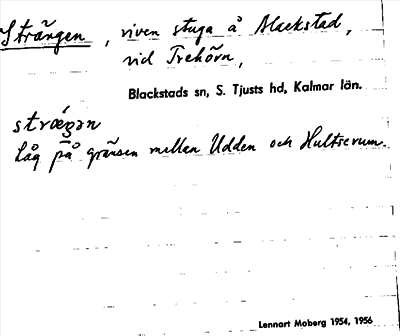 Strängen, riven stuga å Blackstad,
vid Trehörn,
Blackstads sn, S. Tjusts hd, Kalmar län.
stræŋən
Låg på gränsen mellan Udden och Hultserum.
Lennart Moberg 1954, 1956